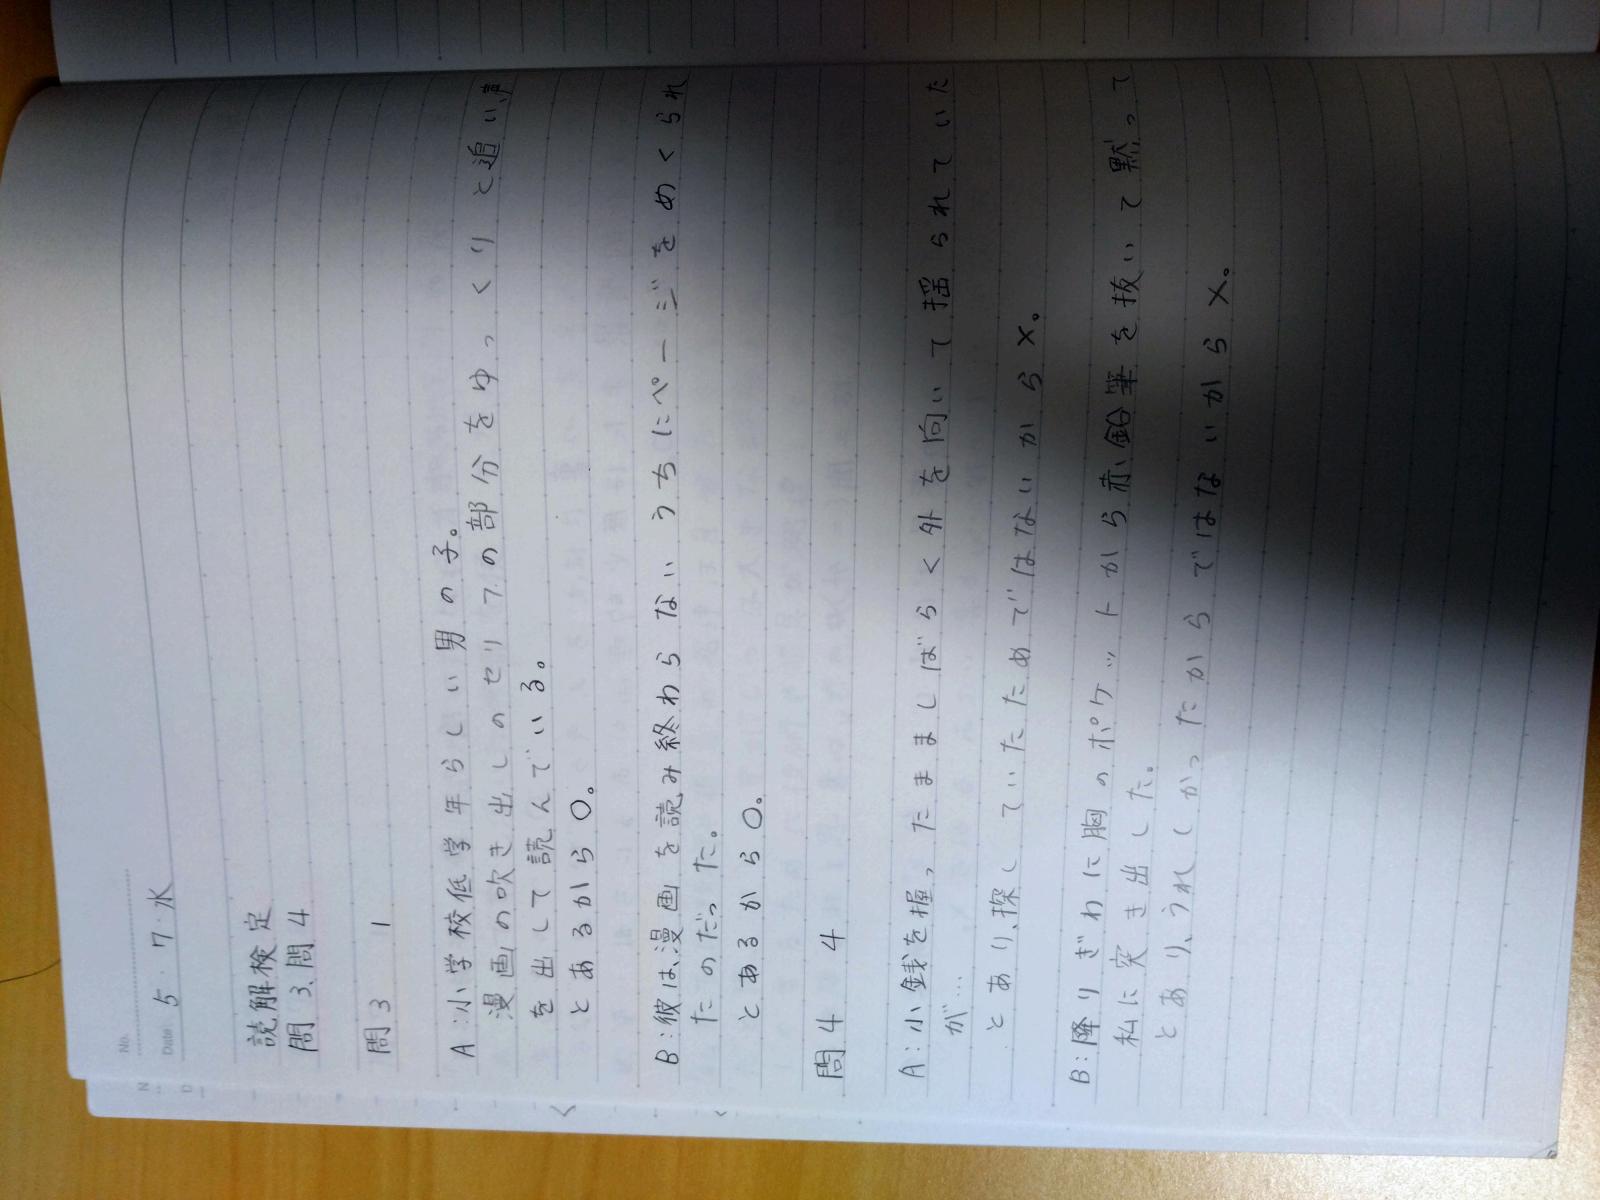 No.
Date 5・7・水
読解検定
問3、問4
問3 1
A:小学校低学年らしい男の子。
漫画の吹き出しのセリフの部分をゆっくりと追い、声
を出して読んでいる。
とあるから○。
B:彼は、漫画を読み終わらないうちにページをめくられ
たのだった。
とあるから○。
問4 4
A:小銭を握ったまましばらく外を向いて揺られていた
が…
とあり、探していたためではないから×。
B:降りぎわに胸のポケットから赤鉛筆を抜いて黙って
私に突き出した。
とあり、うれしかったからではないから×。